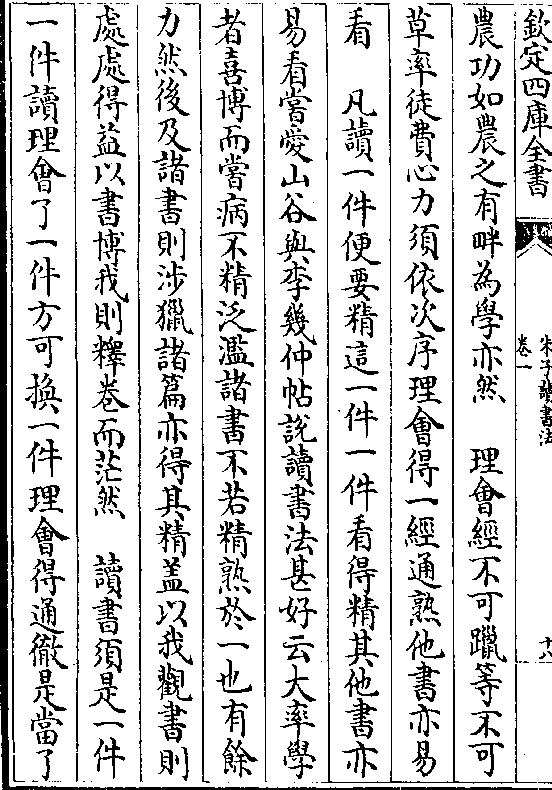 欽定四庫全書
朱子讀書法
卷一
十六
農功如農之有畔為學亦然　理會經不可躐等不可
草率徒費心力須依次序理會得一經通熟他書亦易
看　凡讀一件便要精這一件一件看得精其他書亦
易看嘗愛山谷與李幾仲帖說讀書法甚好云大率學
者喜博而嘗病不精泛濫諸書不若精熟於一也有餘
力然後及諸書則涉獵諸篇亦得其精蓋以我觀書則
處處得益以書博我則釋卷而茫然　讀書須是一件
一件讀理會了一件方可換一件理會得通徹是當了